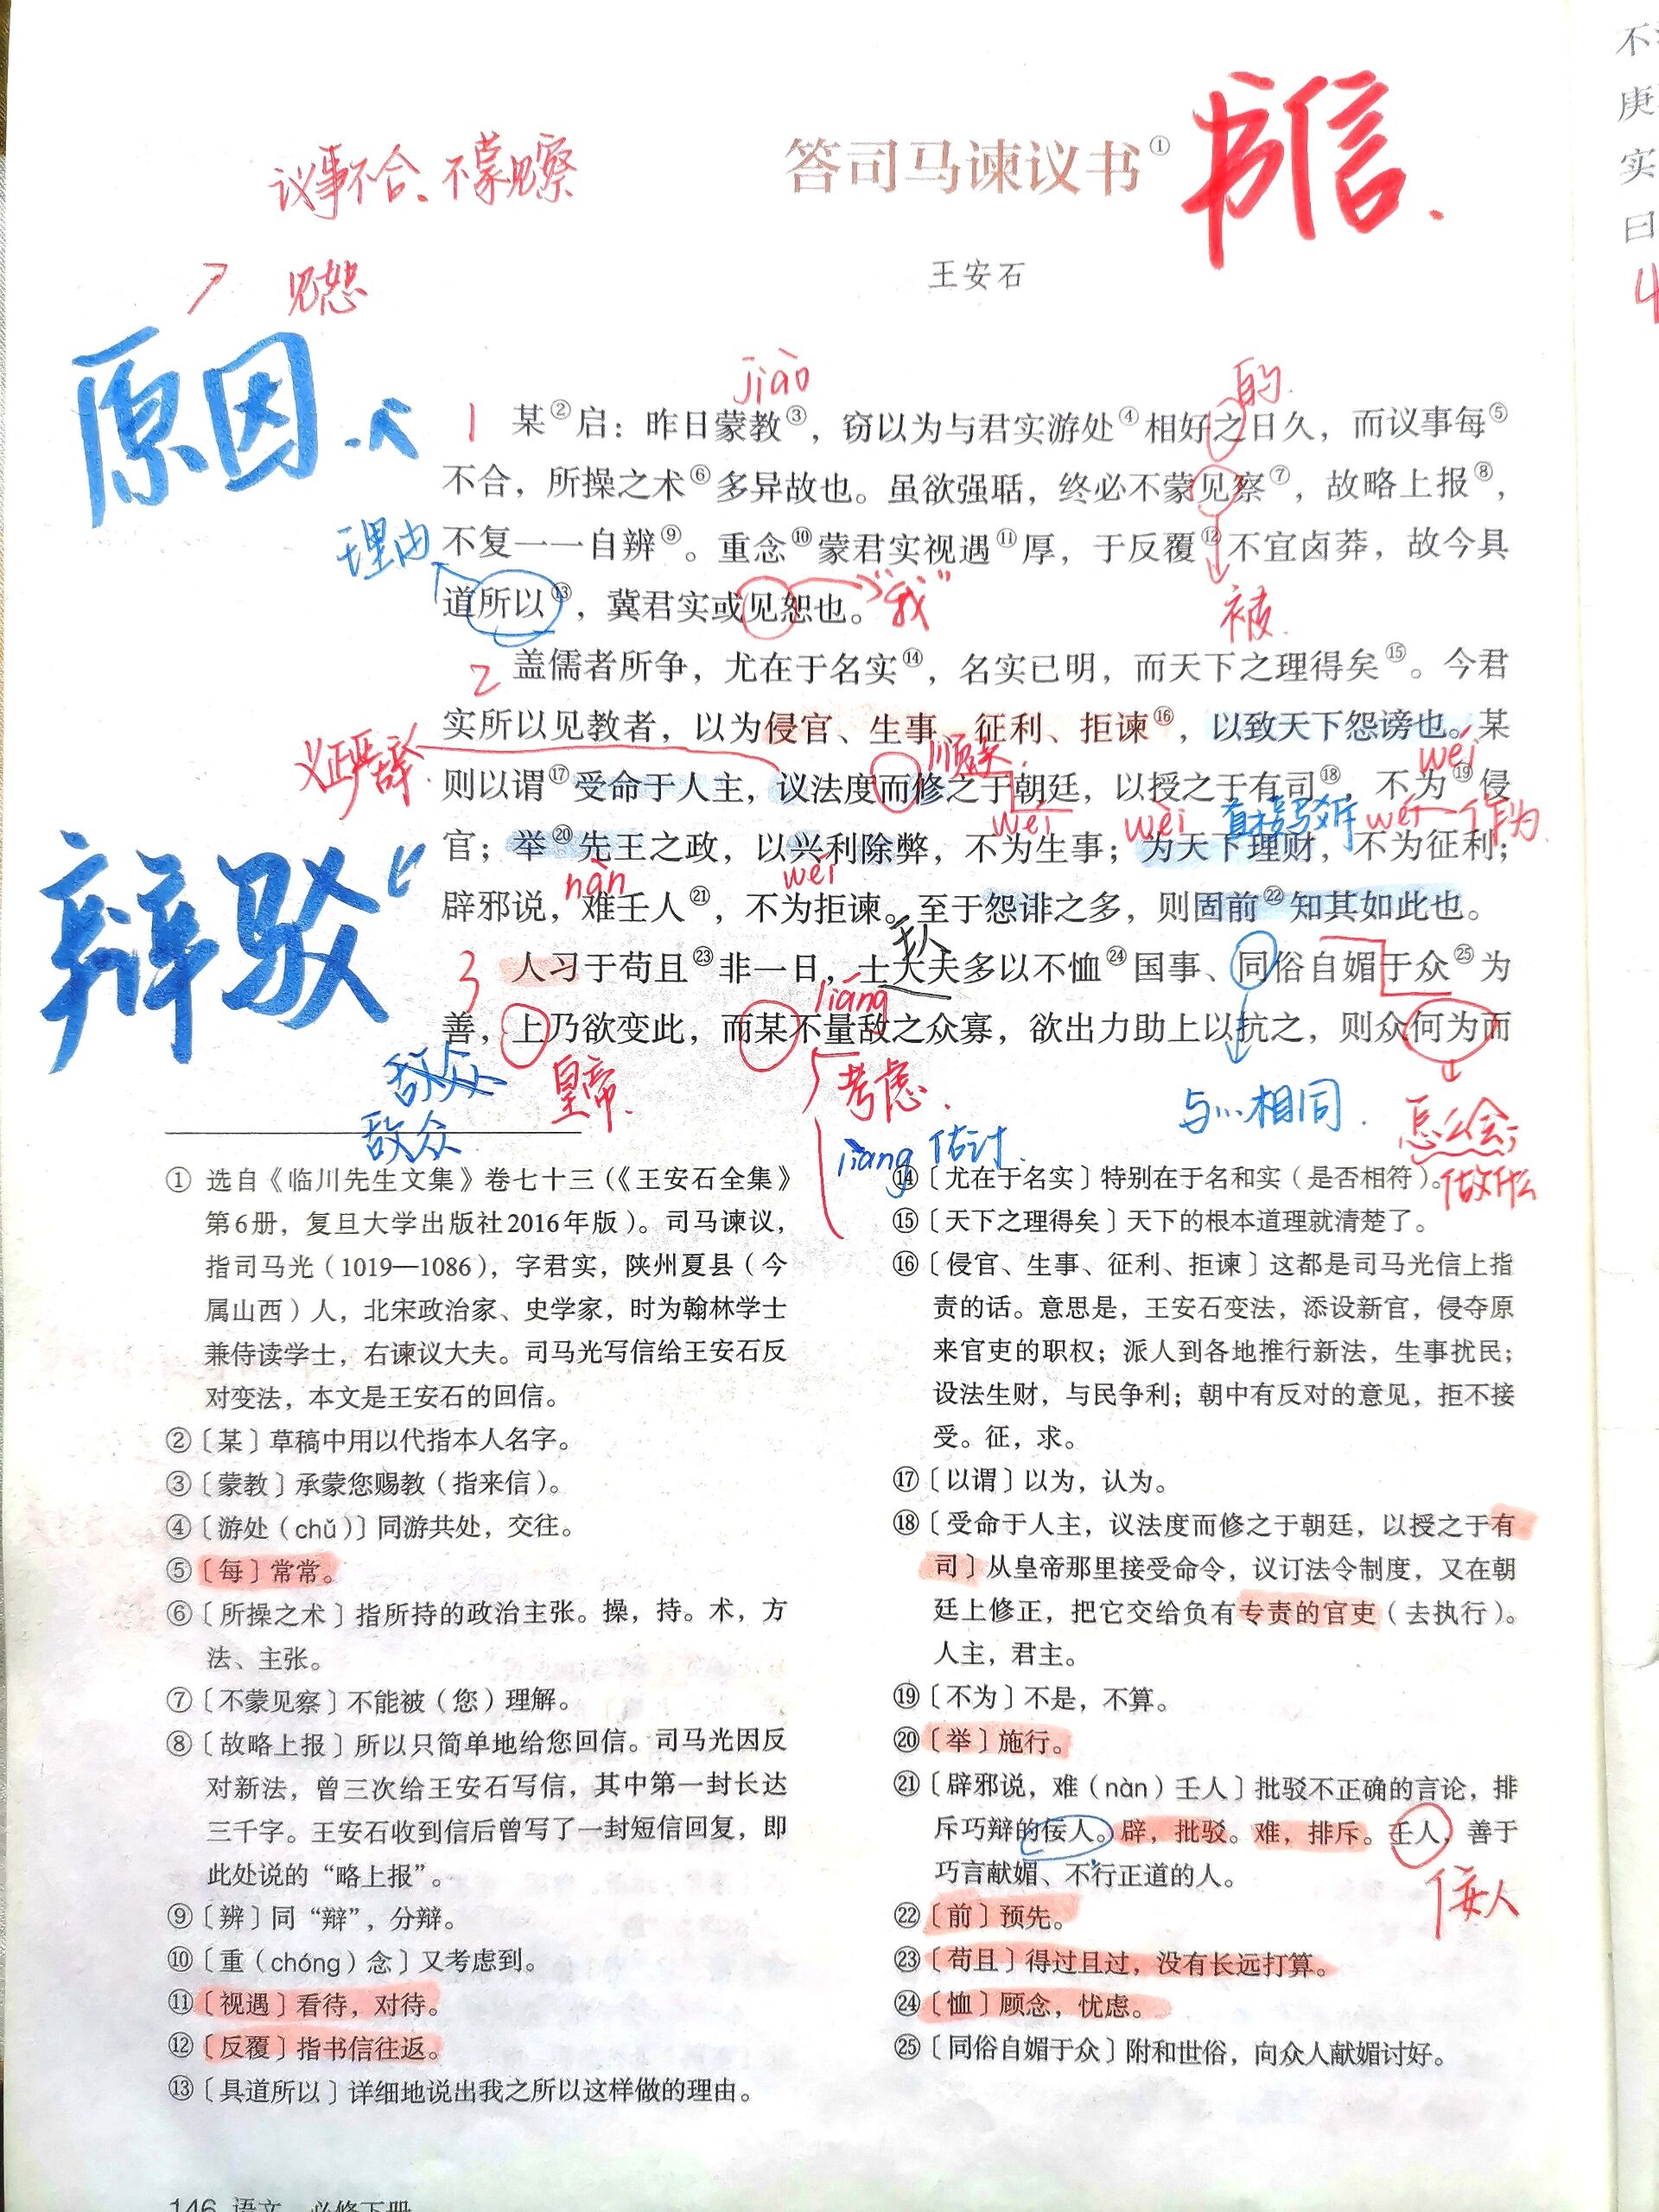 书信.
议事不合、不蒙见察
答司马谏议书①
见恕
王安石
原因.
jiào
的
1 某②启：昨日蒙教③，窃以为与君实游处④相好之日久，而议事每⑤
不合，所操之术⑥多异故也。虽欲强聒，终必不蒙见察⑦，故略上报⑧，
理由
不复一一自辨⑨。重念⑩蒙君实视遇⑪厚，于反覆⑫不宜卤莽，故今具
道所以⑬，冀君实或见恕也。
“我”
被.
2 盖儒者所争，尤在于名实⑭，名实已明，而天下之理得矣⑮。今君
实所以见教者，以为侵官、生事、征利、拒谏⑯，以致天下怨谤也。某
义正严辞.
顺承.
wéi
则以谓⑰受命于人主，议法度而修之于朝廷，以授之于有司⑱，不为⑲侵
wéi
wèi
直接驳斥
wéi—作为
官；举⑳先王之政，以兴利除弊，不为生事；为天下理财，不为征利；
辩驳
nàn
wéi
辟邪说，难壬人㉑，不为拒谏。至于怨诽之多，则固前㉒知其如此也。
3 人习于苟且㉓非一日，士大夫多以不恤㉔国事、同俗自媚于众㉕为
liáng
善，上乃欲变此，而某不量敌之众寡，欲出力助上以抗之，则众何为而
敌众
皇帝.
考虑.
与…相同.
怎么会；
敌众
liàng 估计.
做什么
① 选自《临川先生文集》卷七十三（《王安石全集》
第6册，复旦大学出版社2016年版）。司马谏议，
指司马光（1019—1086），字君实，陕州夏县（今
属山西）人，北宋政治家、史学家，时为翰林学士
兼侍读学士，右谏议大夫。司马光写信给王安石反
对变法，本文是王安石的回信。
②〔某〕草稿中用以代指本人名字。
③〔蒙教〕承蒙您赐教（指来信）。
④〔游处（chǔ）〕同游共处，交往。
⑤〔每〕常常。
⑥〔所操之术〕指所持的政治主张。操，持。术，方
法、主张。
⑦〔不蒙见察〕不能被（您）理解。
⑧〔故略上报〕所以只简单地给您回信。司马光因反
对新法，曾三次给王安石写信，其中第一封长达
三千字。王安石收到信后曾写了一封短信回复，即
此处说的“略上报”。
⑨〔辨〕同“辩”，分辩。
⑩〔重（chóng）念〕又考虑到。
⑪〔视遇〕看待，对待。
⑫〔反覆〕指书信往返。
⑬〔具道所以〕详细地说出我之所以这样做的理由。
⑭〔尤在于名实〕特别在于名和实（是否相符）。
⑮〔天下之理得矣〕天下的根本道理就清楚了。
⑯〔侵官、生事、征利、拒谏〕这都是司马光信上指
责的话。意思是，王安石变法，添设新官，侵夺原
来官吏的职权；派人到各地推行新法，生事扰民；
设法生财，与民争利；朝中有反对的意见，拒不接
受。征，求。
⑰〔以谓〕以为，认为。
⑱〔受命于人主，议法度而修之于朝廷，以授之于有
司〕从皇帝那里接受命令，议订法令制度，又在朝
廷上修正，把它交给负有专责的官吏（去执行）。
人主，君主。
⑲〔不为〕不是，不算。
⑳〔举〕施行。
㉑〔辟邪说，难（nàn）壬人〕批驳不正确的言论，排
斥巧辩的佞人。辟，批驳。难，排斥。壬人，善于
巧言献媚、不行正道的人。
佞人
㉒〔前〕预先。
㉓〔苟且〕得过且过，没有长远打算。
㉔〔恤〕顾念，忧虑。
㉕〔同俗自媚于众〕附和世俗，向众人献媚讨好。
146 语文 必修下册
庚
实
曰
4